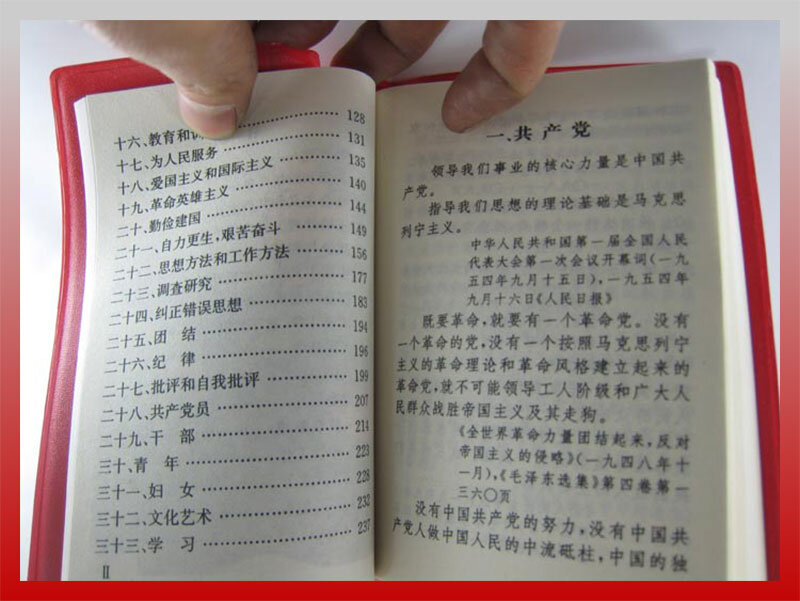 十六、教育和 128
十七、为人民服务 131
十八、爱国主义和国际主义 135
十九、革命英雄主义 140
二十、勤俭建国 144
二十一、自力更生，艰苦奋斗 149
二十二、思想方法和工作方法 156
二十三、调查研究 177
二十四、纠正错误思想 183
二十五、团 结 194
二十六、纪 律 196
二十七、批评和自我批评 199
二十八、共产党员 207
二十九、干 部 214
三十、青 年 223
三十一、妇 女 228
三十二、文化艺术 232
三十三、学 习 237
II
一、共产党
领导我们事业的核心力量是中国共
产党。
指导我们思想的理论基础是马克思
列宁主义。
中华人民共和国第一届全国人民
代表大会第一次会议开幕词（一九
五四年九月十五日），一九五四年
九月十六日《人民日报》
既要革命，就要有一个革命党。没有
一个革命的党，没有一个按照马克思列宁
主义的革命理论和革命风格建立起来的
革命党，就不可能领导工人阶级和广大人
民群众战胜帝国主义及其走狗。
《全世界革命力量团结起来，反对
帝国主义的侵略》（一九四八年十
一月），《毛泽东选集》第四卷第一
三六〇页
没有中国共产党的努力，没有中国共
产党人做中国人民的中流砥柱，中国的独